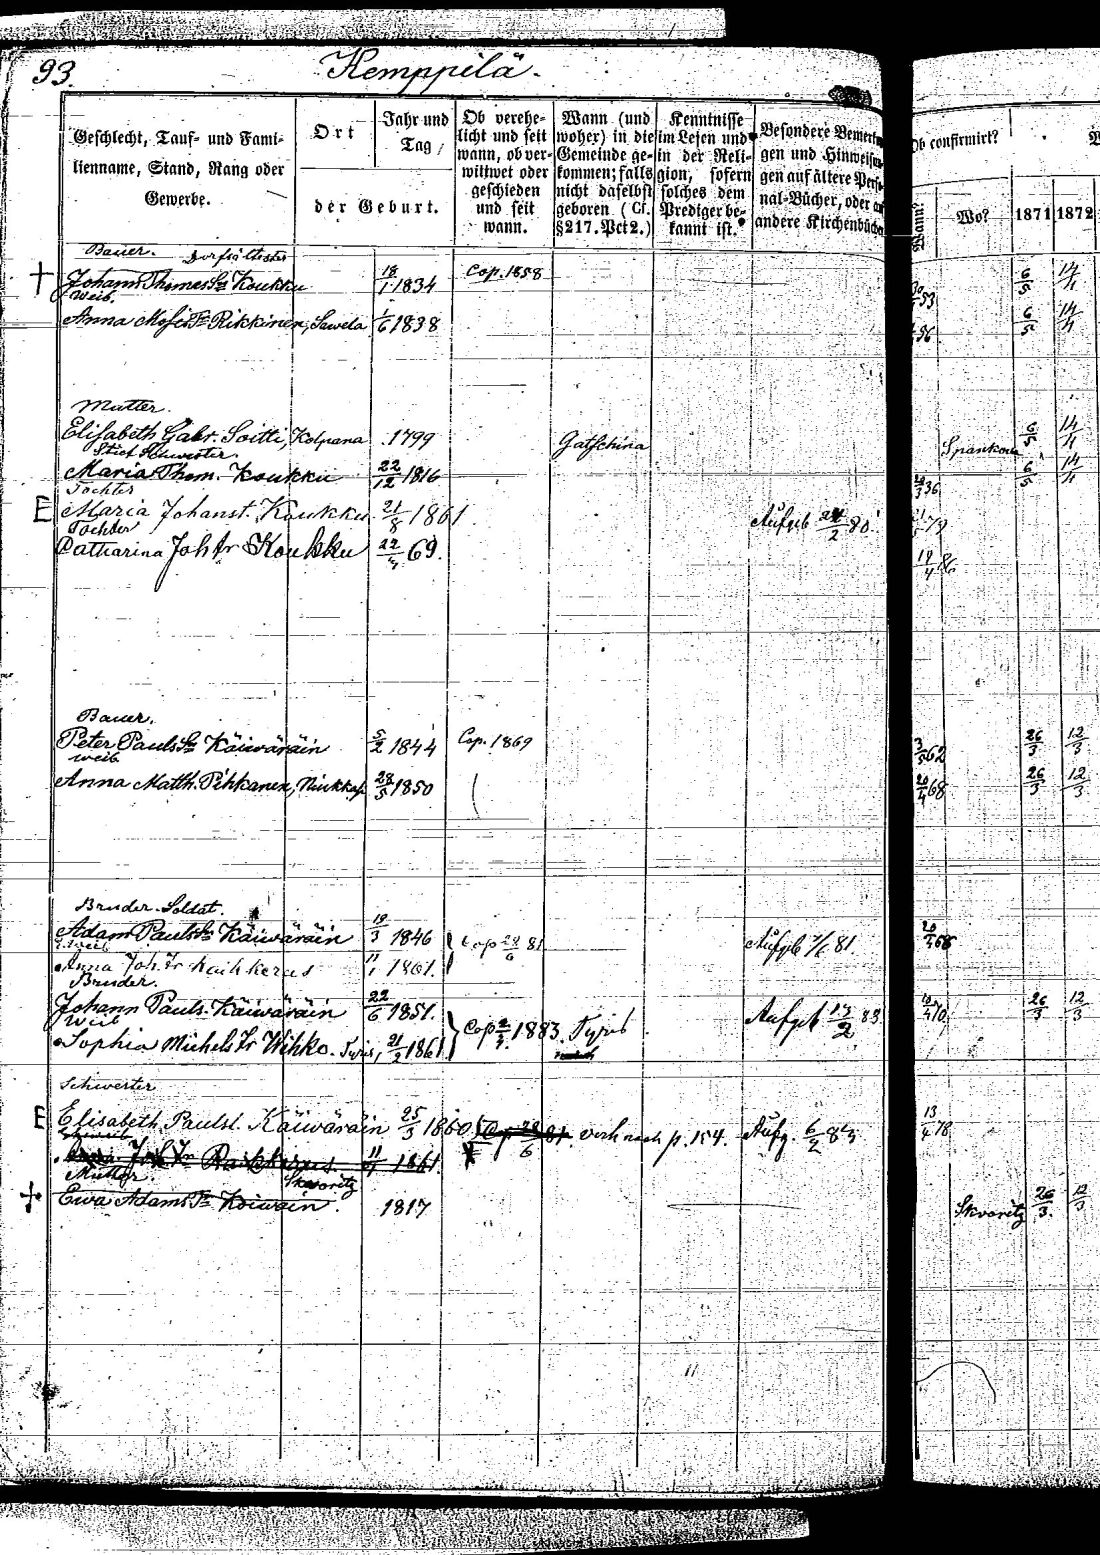 93.
Kemppilä.
Geschlecht, Tauf- und Familienname, Stand, Rang oder Gewerbe.
Ort
Jahr und Tag
der Geburt.
Ob verehelicht und seit wann, ob verwittwet oder geschieden und seit wann.
Wann (und woher) in die Gemeinde gekommen; falls nicht daselbst geboren (Cf. §217. Pct 2.)
Kenntnisse im Lesen und in der Religion, sofern solches dem Prediger bekannt ist.
Besondere Bemerkungen und Hinweisungen auf ältere Personal-Bücher, oder auf andere Kirchenbücher
Ob confirmirt?
Wann?
Wo?
1871
1872
Bauer. Dorfältester
Johann Thomas Sn Koukku 18/1 1834 Cop. 1858 53 6/5 14/4
Weib.
Anna Moses Tr Rikkinen, Sawela 1/6 1838 56 6/5 14/4
Mutter.
Elisabeth Gabr. Soitti, Kolpana 1799 Gatschina Spankowa 6/5 14/4
Stief Schwester
Maria Thom. Koukku 22/12 1816 36 6/5 14/4
Tochter
E Maria Johanst. Koukku 21/8 1861 Aufgeb 24/2 80 79
Tochter
Catharina Joh tr Koukku 22/4 69. 19/4 86
Bauer.
Peter Pauls Sn Käiwäräin 5/2 1844 Cop. 1869 3/5 62 26/3 12/3
Weib
Anna Matth. Pihkanen, Niukkas. 28/5 1850 20/4 68 26/3 12/3
Bruder. Soldat.
Adam Pauls Sn Käiwäräin 19/3 1846 Cop 28/6 81 Aufgeb 7/6 81. 20/4 66
Weib
Anna Joh. Tr Kaihkerus 11/1 1861.
Bruder.
Johann Pauls. Käiwäräin 22/6 1851. Cop 2/3 1883. Tyris Aufgeb 13/2 83 19/4 70 26/3 12/3
Weib
Sophia Michels Tr Wihko. Tyris, 21/2 1861
Schwester
E Elisabeth Paulst. Käiwäräin 25/3 1860 Cop 28/6 81. verh nach p. 154. Aufg. 6/2 83 13/4 78
11/1 1861.
Mutter. Skworitz
Ewa Adams Tr Koiwain. 1817 Skworitz 26/3. 12/3